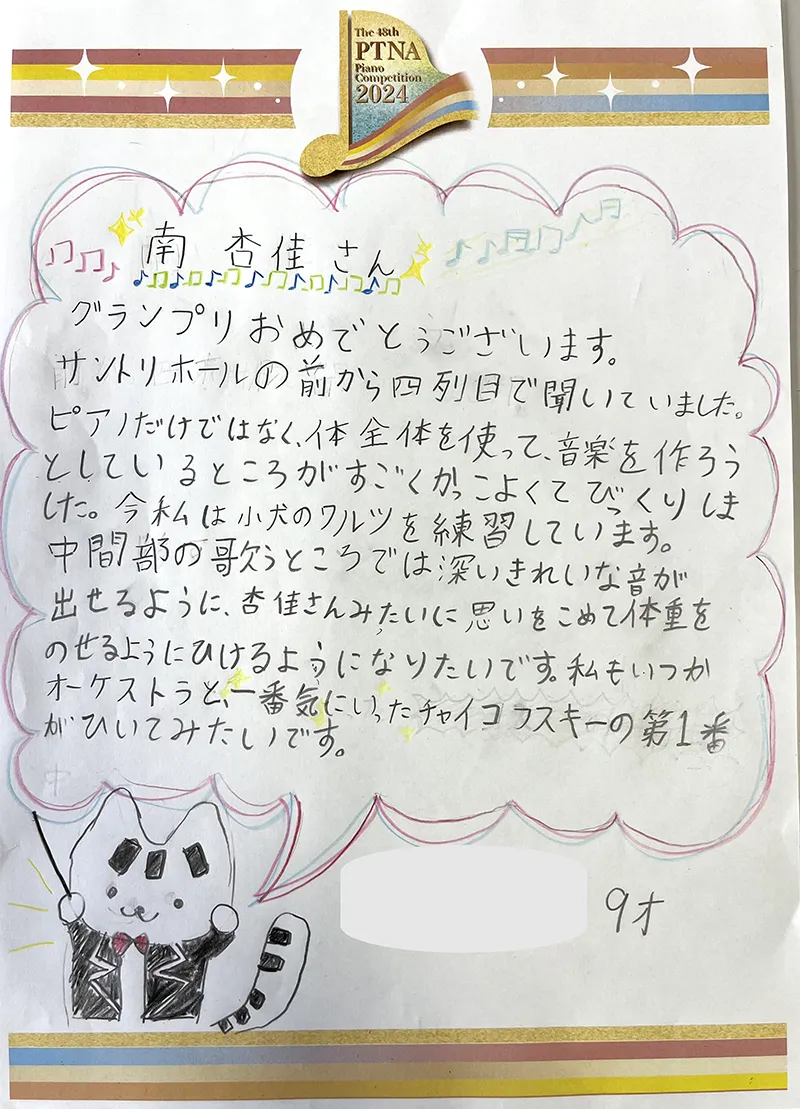 The 48th
PTNA
Piano
Competition
2024
南 杏佳 さん
グランプリおめでとうございます。
サントリホールの前から四列目で聞いていました。
ピアノだけではなく、体全体を使って、音楽を作ろう
としているところがすごくかっこよくてびっくりしま
した。今私は小犬のワルツを練習しています。
中間部の歌うところでは深いきれいな音が
出せるように、杏佳さんみたいに思いをこめて体重を
のせるようにひけるようになりたいです。私もいつか
オーケストラと、一番気にいったチャイコフスキーの第1番
がひいてみたいです。
9才